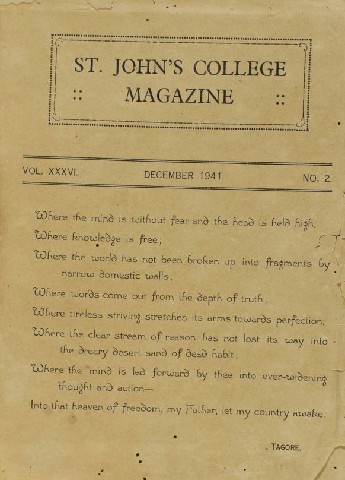 ST. JOHN'S COLLEGE
:: MAGAZINE ::
VOL. XXXVI. DECEMBER 1941 NO. 2.
Where the mind is without fear and the head is held high,
Where knowledge is free;
Where the world has not been broken up into fragments by
narrow domestic walls;
Where words come out from the depth of truth;
Where tireless striving stretches its arms towards perfection;
Where the clear stream of reason has not lost its way into
the dreary desert sand of dead habit;
Where the mind is led forward by thee into ever-widening
thought and action—
Into that heaven of freedom, my Father, let my country awake.
TAGORE.